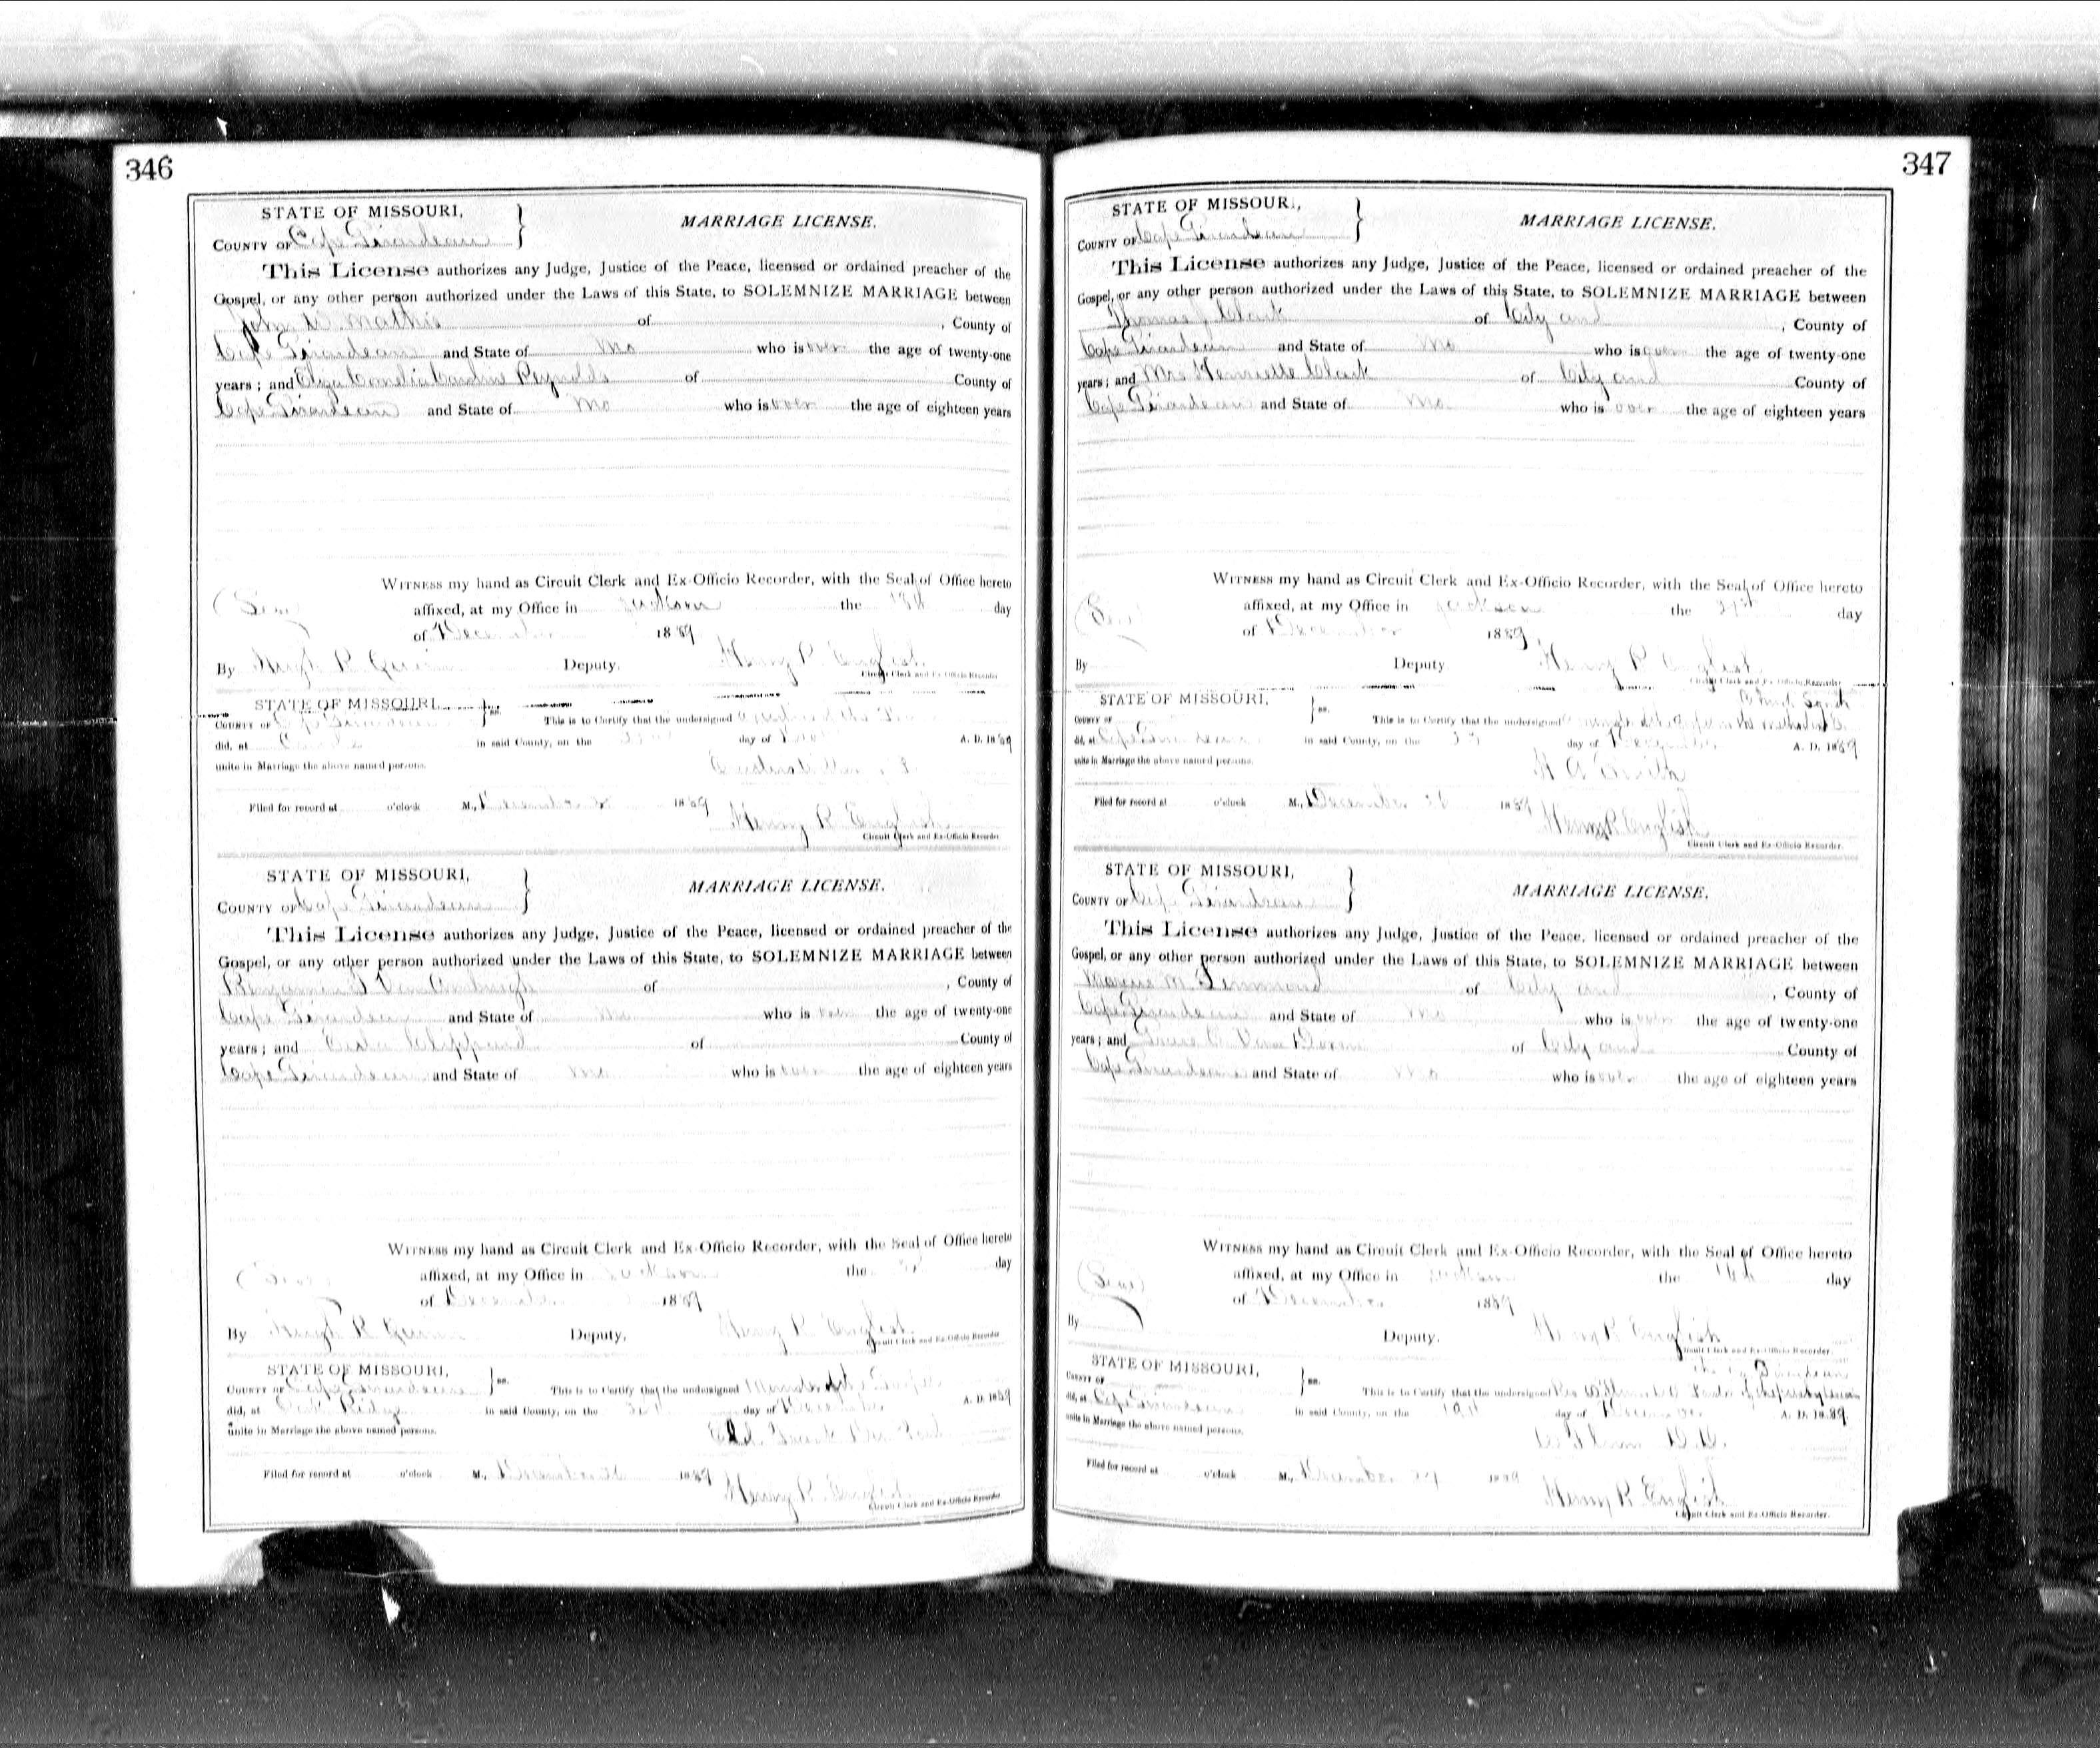 346
STATE OF MISSOURI,
MARRIAGE LICENSE.
COUNTY OF Cape Girardeau
This License authorizes any Judge, Justice of the Peace, licensed or ordained preacher of the
Gospel, or any other person authorized under the Laws of this State, to SOLEMNIZE MARRIAGE between
John W. Mathis of , County of
Cape Girardeau and State of Mo who is over the age of twenty-one
years; and Eliza Cornelia Caroline Reynolds of County of
Cape Girardeau and State of Mo who is over the age of eighteen years
WITNESS my hand as Circuit Clerk and Ex-Officio Recorder, with the Seal of Office hereto
(Seal) affixed, at my Office in Jackson the day
of December 1889
By Hugh R Quinn Deputy. Henry P. English
Circuit Clerk and Ex-Officio Recorder
STATE OF MISSOURI, ss.
COUNTY OF Cape Girardeau This is to Certify that the undersigned
did, at in said County, on the day of A. D. 1889
unite in Marriage the above named persons.
Filed for record at o'clock M., December 1889
Henry P. English
Circuit Clerk and Ex-Officio Recorder.
STATE OF MISSOURI,
MARRIAGE LICENSE.
COUNTY OF Cape Girardeau
This License authorizes any Judge, Justice of the Peace, licensed or ordained preacher of the
Gospel, or any other person authorized under the Laws of this State, to SOLEMNIZE MARRIAGE between
Benjamin F Van Amburgh of , County of
Cape Girardeau and State of Mo who is over the age of twenty-one
years; and Clippard of County of
Cape Girardeau and State of Mo who is over the age of eighteen years
WITNESS my hand as Circuit Clerk and Ex-Officio Recorder, with the Seal of Office hereto
(Seal) affixed, at my Office in Jackson the day
of December 1889
By Hugh R Quinn Deputy. Henry P. English
Circuit Clerk and Ex-Officio Recorder
STATE OF MISSOURI, ss.
COUNTY OF Cape Girardeau This is to Certify that the undersigned
did, at Oak Ridge in said County, on the day of December A. D. 1889
unite in Marriage the above named persons.
Filed for record at o'clock M., December 1889
Henry P. English
Circuit Clerk and Ex-Officio Recorder
347
STATE OF MISSOURI,
MARRIAGE LICENSE.
COUNTY OF Cape Girardeau
This License authorizes any Judge, Justice of the Peace, licensed or ordained preacher of the
Gospel, or any other person authorized under the Laws of this State, to SOLEMNIZE MARRIAGE between
Thomas J Clark of City and , County of
Cape Girardeau and State of Mo who is over the age of twenty-one
years; and Mrs Henriette Clark of City and County of
Cape Girardeau and State of Mo who is over the age of eighteen years
WITNESS my hand as Circuit Clerk and Ex-Officio Recorder, with the Seal of Office hereto
(Seal) affixed, at my Office in Jackson the 21st day
of December 1889,
By Deputy Henry P English
Circuit Clerk and Ex-Officio Recorder
STATE OF MISSOURI, ss.
COUNTY OF This is to Certify that the undersigned
did, at Cape Girardeau in said County, on the day of December A. D. 1889
unite in Marriage the above named persons.
H A Smith
Filed for record at o'clock M., December 1889
Henry P English
Circuit Clerk and Ex-Officio Recorder.
STATE OF MISSOURI,
MARRIAGE LICENSE.
COUNTY OF Cape Girardeau
This License authorizes any Judge, Justice of the Peace, licensed or ordained preacher of the
Gospel, or any other person authorized under the Laws of this State, to SOLEMNIZE MARRIAGE between
M. Simmons of City and , County of
Cape Girardeau and State of Mo who is over the age of twenty-one
years; and of City and County of
Cape Girardeau and State of Mo who is over the age of eighteen years
WITNESS my hand as Circuit Clerk and Ex-Officio Recorder, with the Seal of Office hereto
(Seal) affixed, at my Office in Jackson the day
of December 1889
By Deputy. Henry P English
Circuit Clerk and Ex-Officio Recorder.
STATE OF MISSOURI, ss.
COUNTY OF This is to Certify that the undersigned
did, at Cape Girardeau in said County, on the day of December A. D. 1889
unite in Marriage the above named persons.
Filed for record at o'clock M., December 1889
Henry P. English
Circuit Clerk and Ex-Officio Recorder.